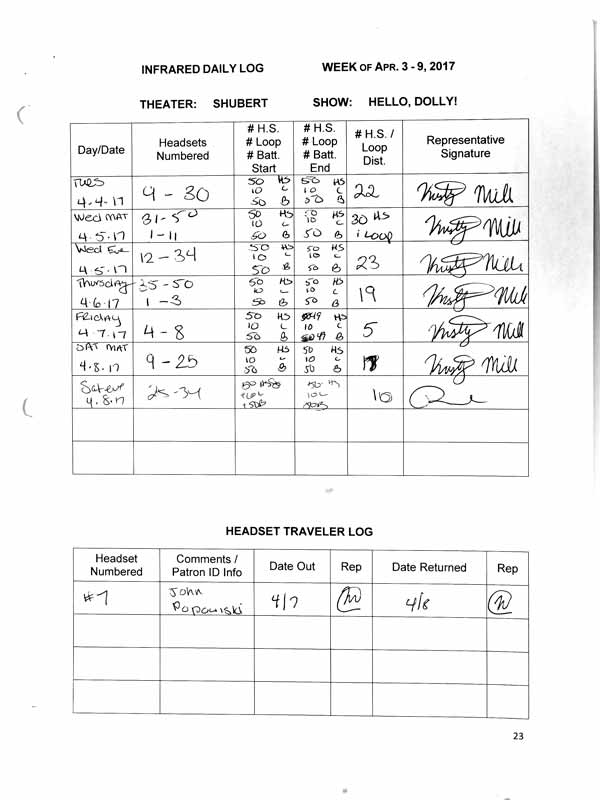 INFRARED DAILY LOG WEEK OF APR. 3 - 9, 2017
THEATER: SHUBERT SHOW: HELLO, DOLLY!
Day/Date Headsets Numbered # H.S. # Loop # Batt. Start # H.S. # Loop # Batt. End # H.S. / Loop Dist. Representative Signature
Tues 4.4.17 9 - 30 50 HS 10 L 50 B 50 HS 10 L 50 B 22 Kristy Mill
Wed MAT 4.5.17 31-50 1-11 50 HS 10 L 50 B 50 HS 10 L 50 B 30 HS 1 Loop Kristy Mill
Wed Eve 4.5.17 12-34 50 HS 10 L 50 B 50 HS 10 L 50 B 23 Kristy Mill
Thursday 4.6.17 35-50 1-3 50 HS 10 L 50 B 50 HS 10 L 50 B 19 Kristy Mill
FRIDAY 4.7.17 4-8 50 HS 10 L 50 B 49 HS 10 L 49 B 5 Kristy Mill
SAT MAT 4.8.17 9-25 50 HS 10 L 50 B 50 HS 10 L 50 B Kristy Mill
Sat eve 4.8.17 25-34 50 10L 50B 10
HEADSET TRAVELER LOG
Headset Numbered Comments / Patron ID Info Date Out Rep Date Returned Rep
#7 John 4/7 4/8
23